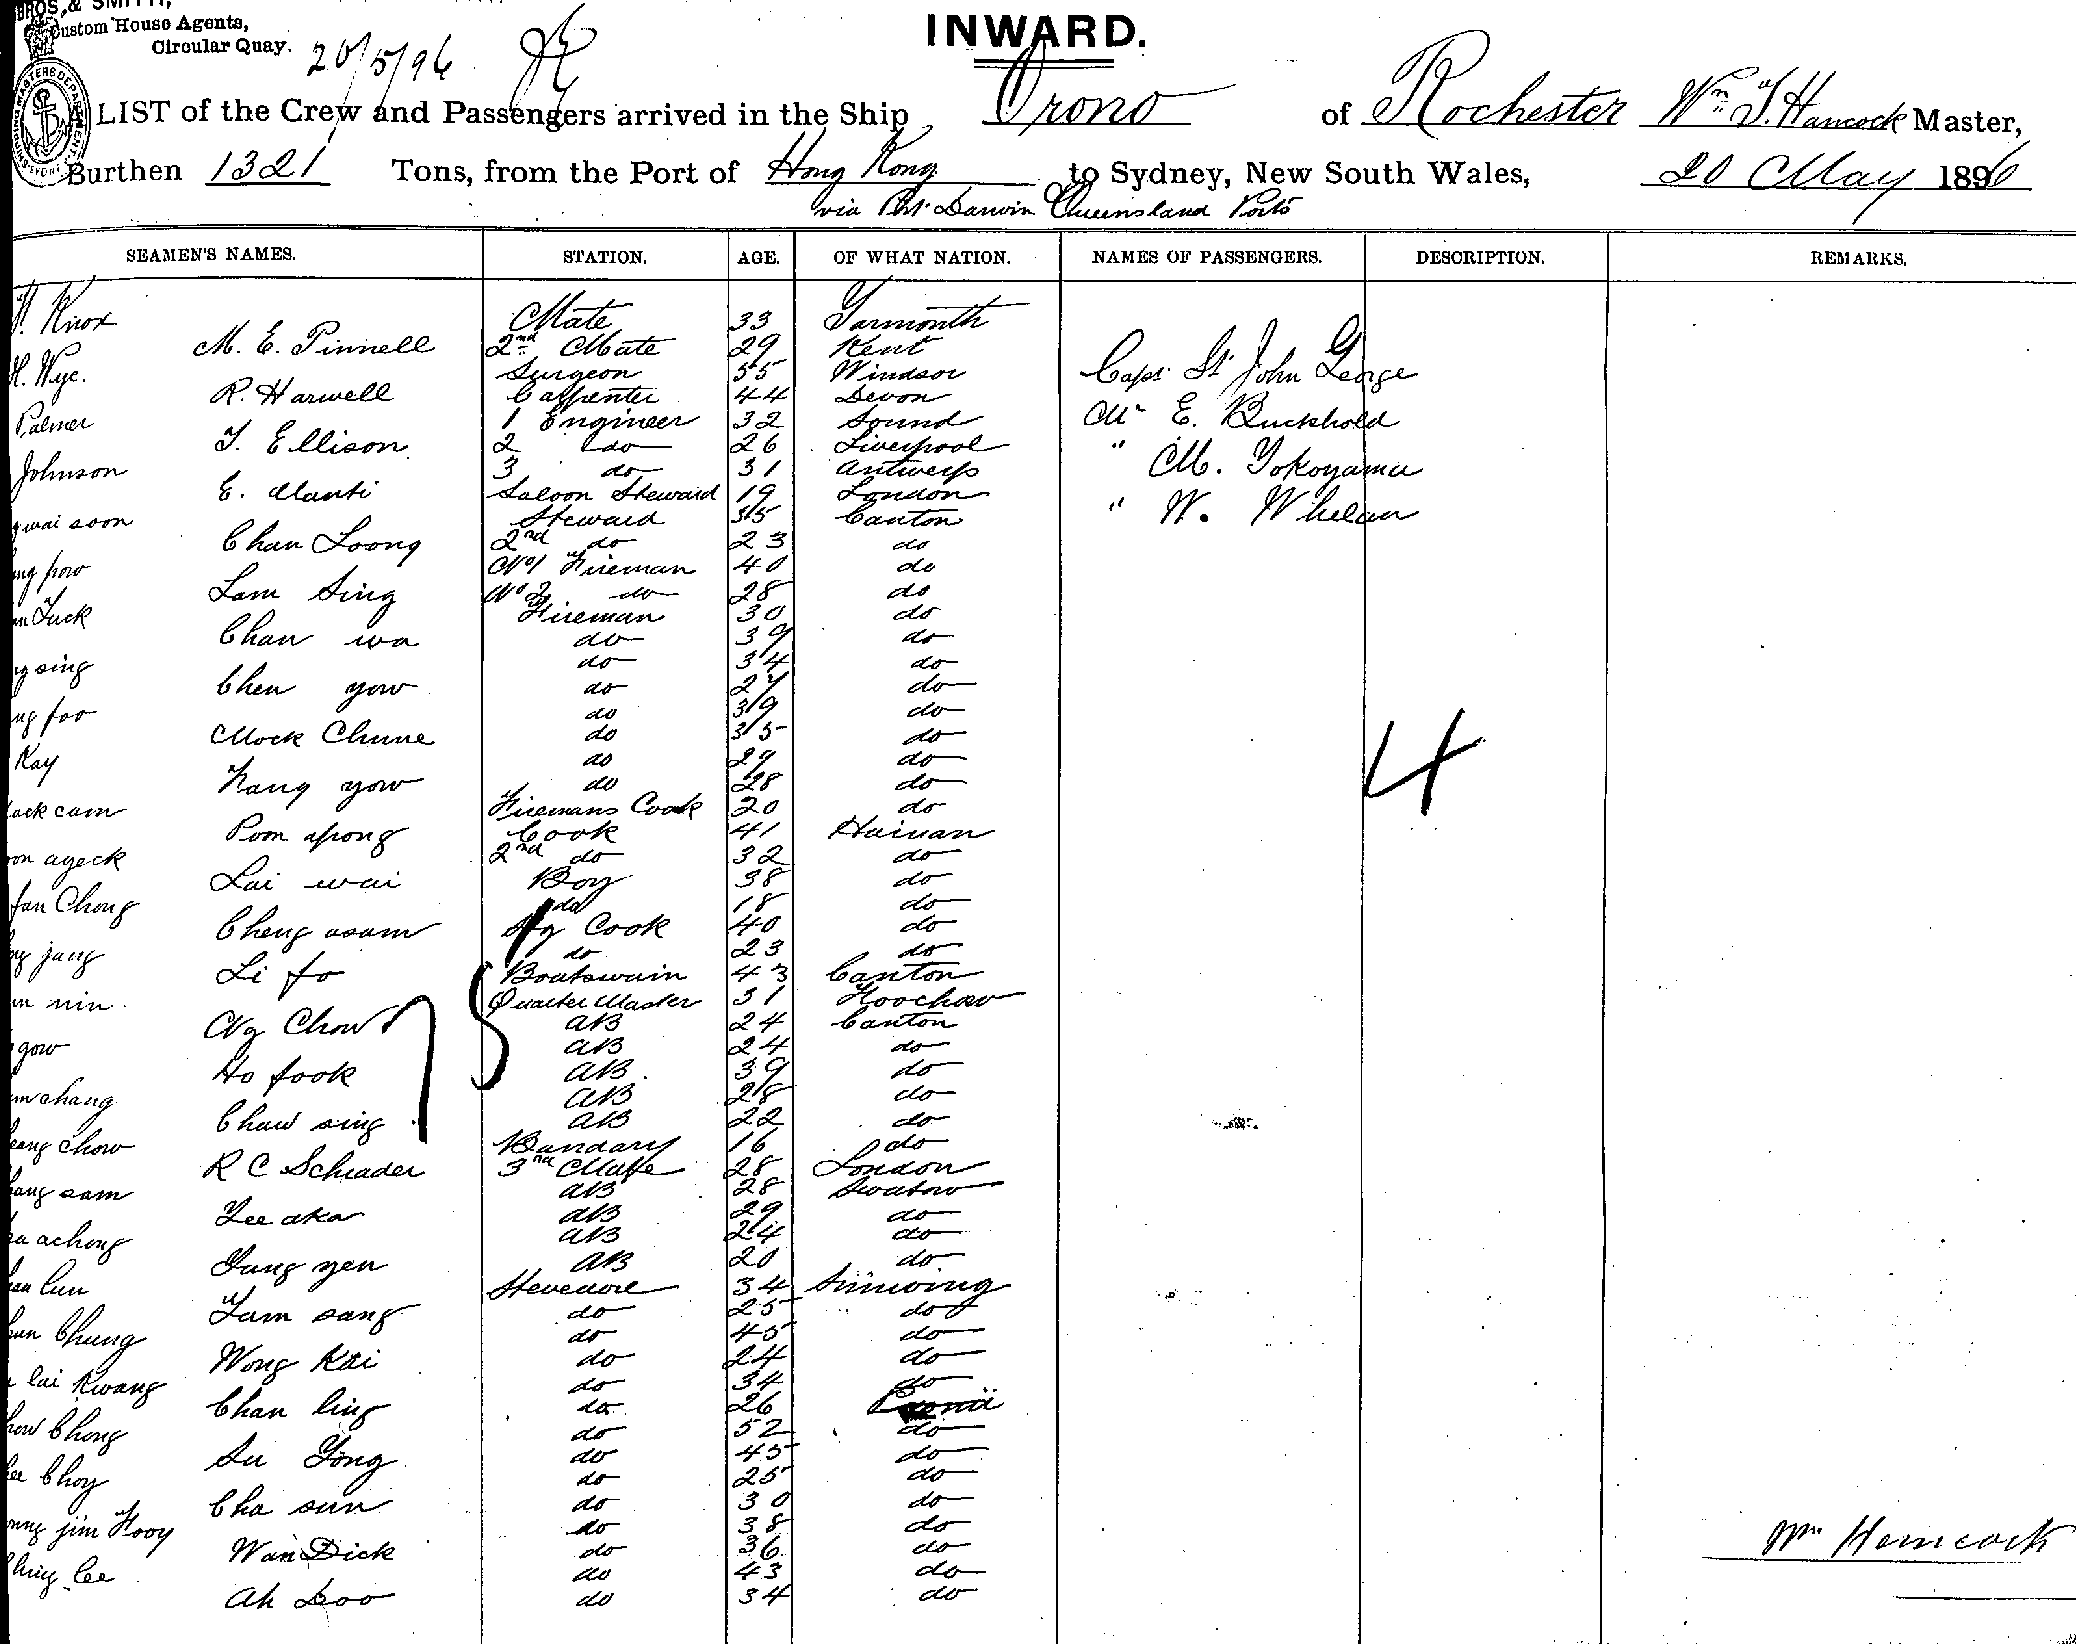 BROS. & SMITH,
Custom House Agents,
Circular Quay.
20/5/96
INWARD.
LIST of the Crew and Passengers arrived in the Ship Orono of Rochester Wm T. Hancock Master,
Burthen 1321 Tons, from the Port of Hong Kong to Sydney, New South Wales, 20 May 1896
via Pt. Darwin Queensland Ports
SEAMEN'S NAMES. STATION. AGE. OF WHAT NATION. NAMES OF PASSENGERS. DESCRIPTION. REMARKS.
Knox Mate 33 Yarmouth
M. E. Pinnell 2nd Mate 29 Kent
H. Wye. Surgeon 55 Windsor Capt. St. John George
R. Harwell Carpenter 44 Devon
Palmer 1 Engineer 32 Sound Mr E. Buckhold
T. Ellison 2 do 26 Liverpool
Johnson 3 do 31 Antwerp " M. Yokoyama
E. Manti Saloon Steward 19 London
wai soon Steward 35 Canton " W. Whelan
Chan Loong 2nd do 23 do
pow No 1 Fireman 40 do
Lam Sing No 2 do 28 do
Tuck Fireman 30 do
Chan wa do 39 do
sing do 34 do
Chen yow do 27 do
foo do 39 do
Mock Chune do 35 do
Kay do 29 do
Kang yow do 28 do
cam Firemans Cook 20 do
Pom apong Cook 41 Hainan
ageck 2nd do 32 do
Lai wai Boy 38 do
Chong do 18 do
Cheng asam Cook 40 do
jang do 23 do
Li fo Boatswain 43 Canton
nin Quarter Master 31 Foochow
Ng Chow AB 24 Canton
gow AB 24 do
Ho fook AB 39 do
chang AB 28 do
Chaw sing AB 22 do
chow Bandary 16 do
R C Schrader 3rd Mate 28 London
sam AB 28 Swatow
Lee aka AB 29 do
achong AB 24 do
Yung yen AB 20 do
lun Stevedore 34 Sunwing
Tam sang do 25 do
Chung do 45 do
Wong Kai do 24 do
lai Kwang do 34 do
Chan ling do 26
Chong do 52 do
Su Yong do 45 do
Choy do 25 do
Cha sun do 30 do
jim Kooy do 38 do
Wan Dick do 36 do
lee do 43 do
Ah Loo do 34 do
4
Wm Hancock